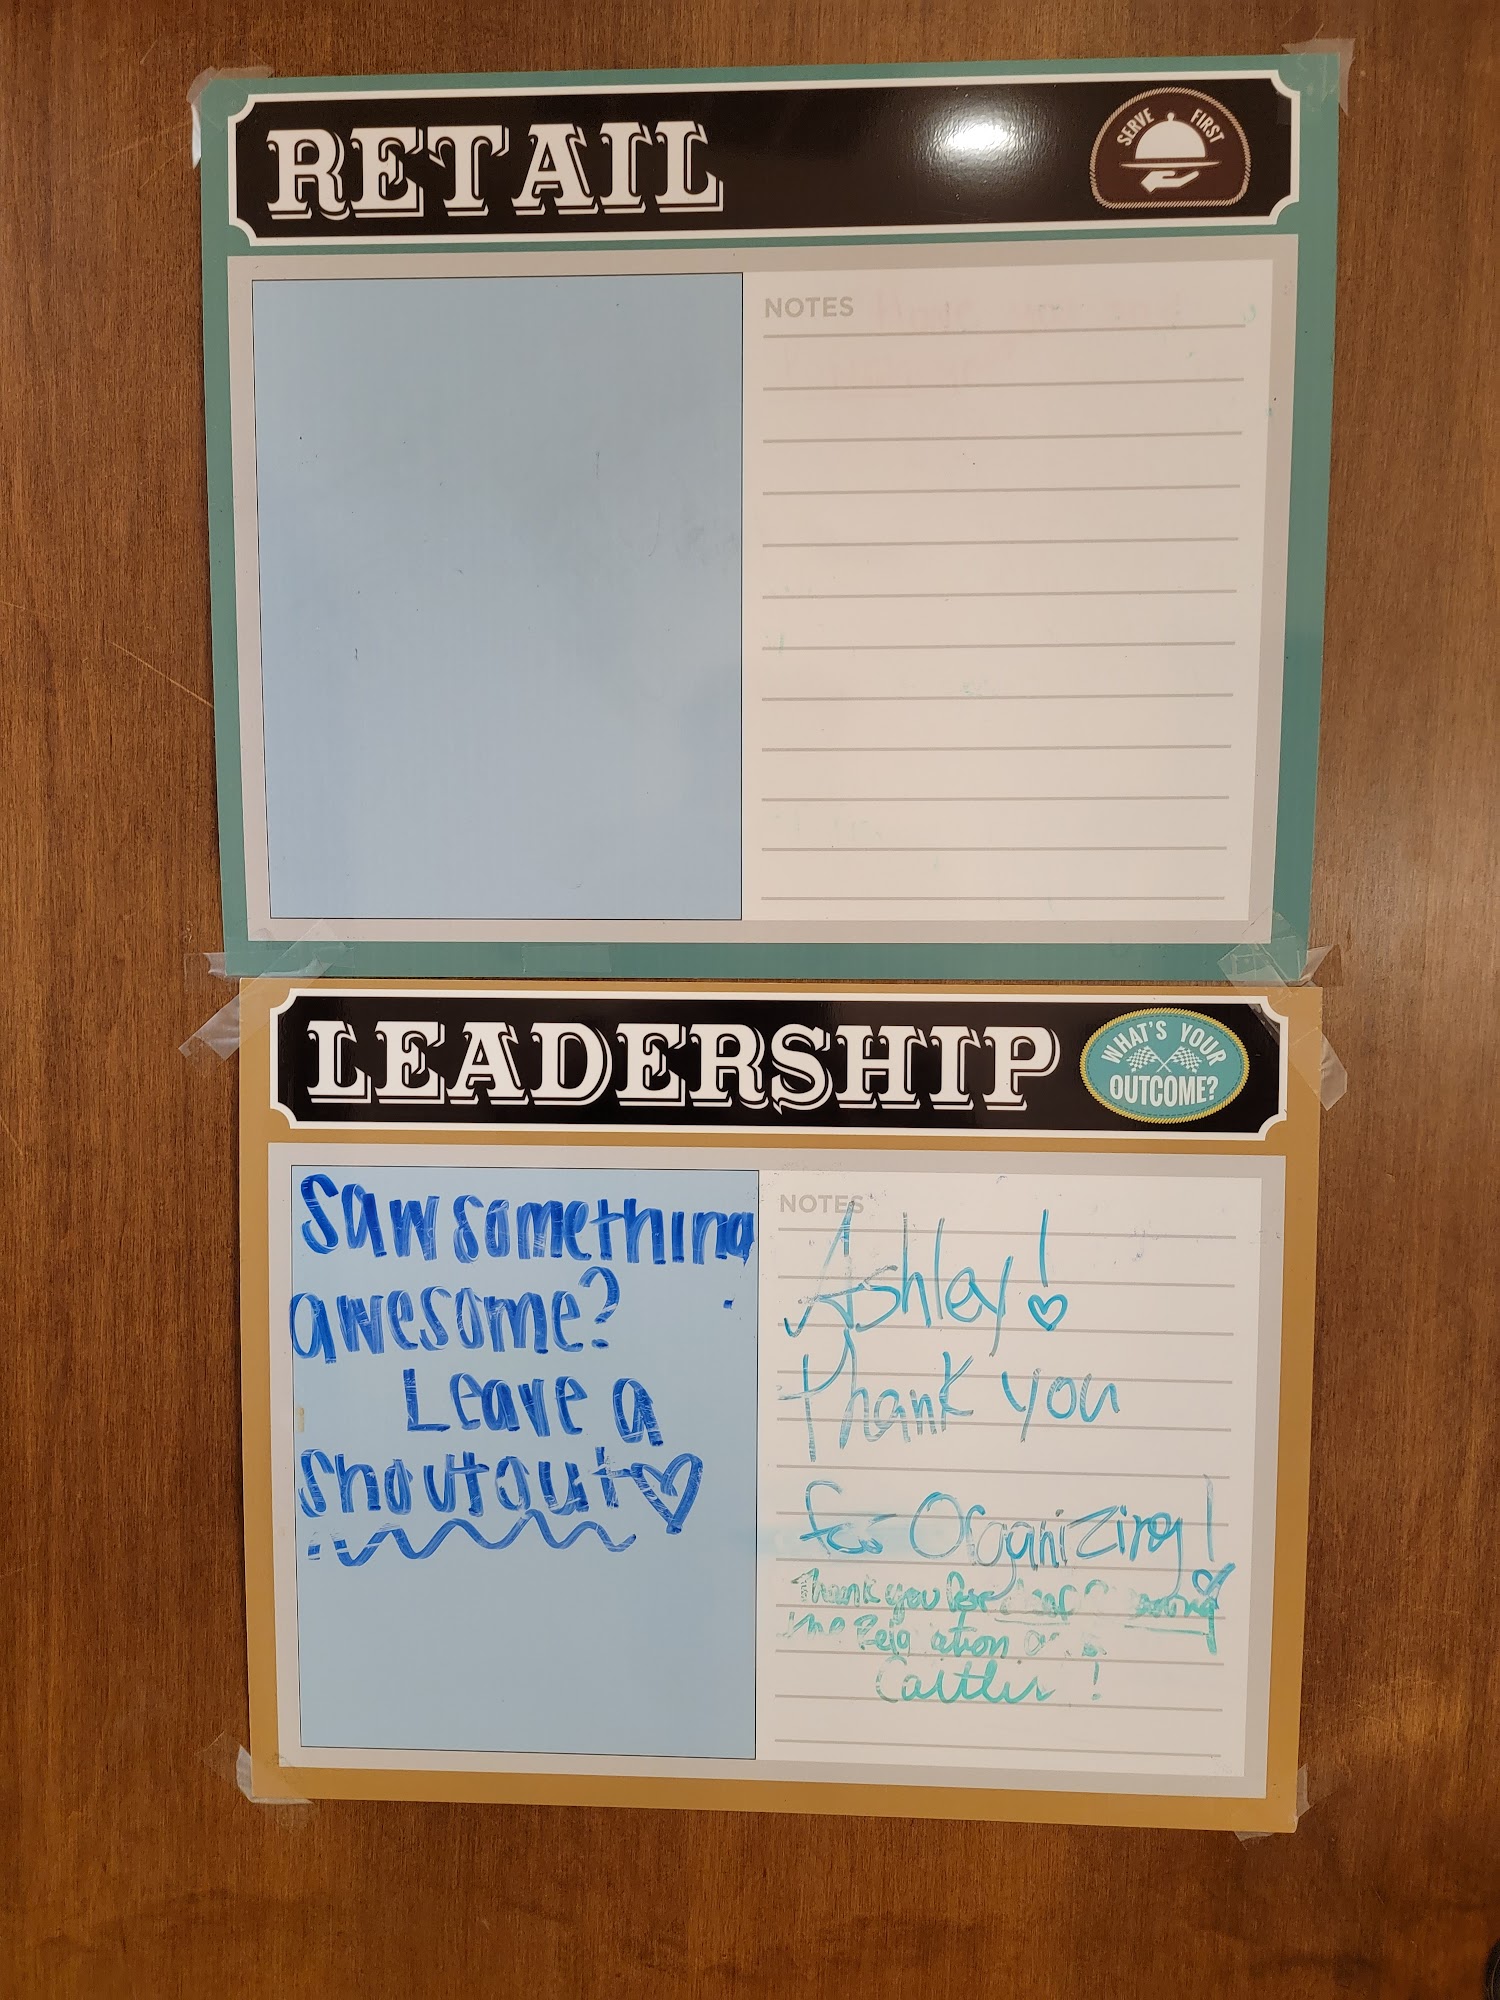 RETAIL
SERVE FIRST
NOTES
LEADERSHIP
WHAT'S YOUR
OUTCOME?
Saw something
awesome?
Leave a
Shoutout
NOTES
Ashley!
Thank you
for Organizing!
Thank you for
the
Caitlin!